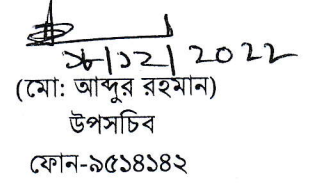 /12/2022
(মো: আব্দুর রহমান)
উপসচিব
ফোন-৯৫১৪১৪২